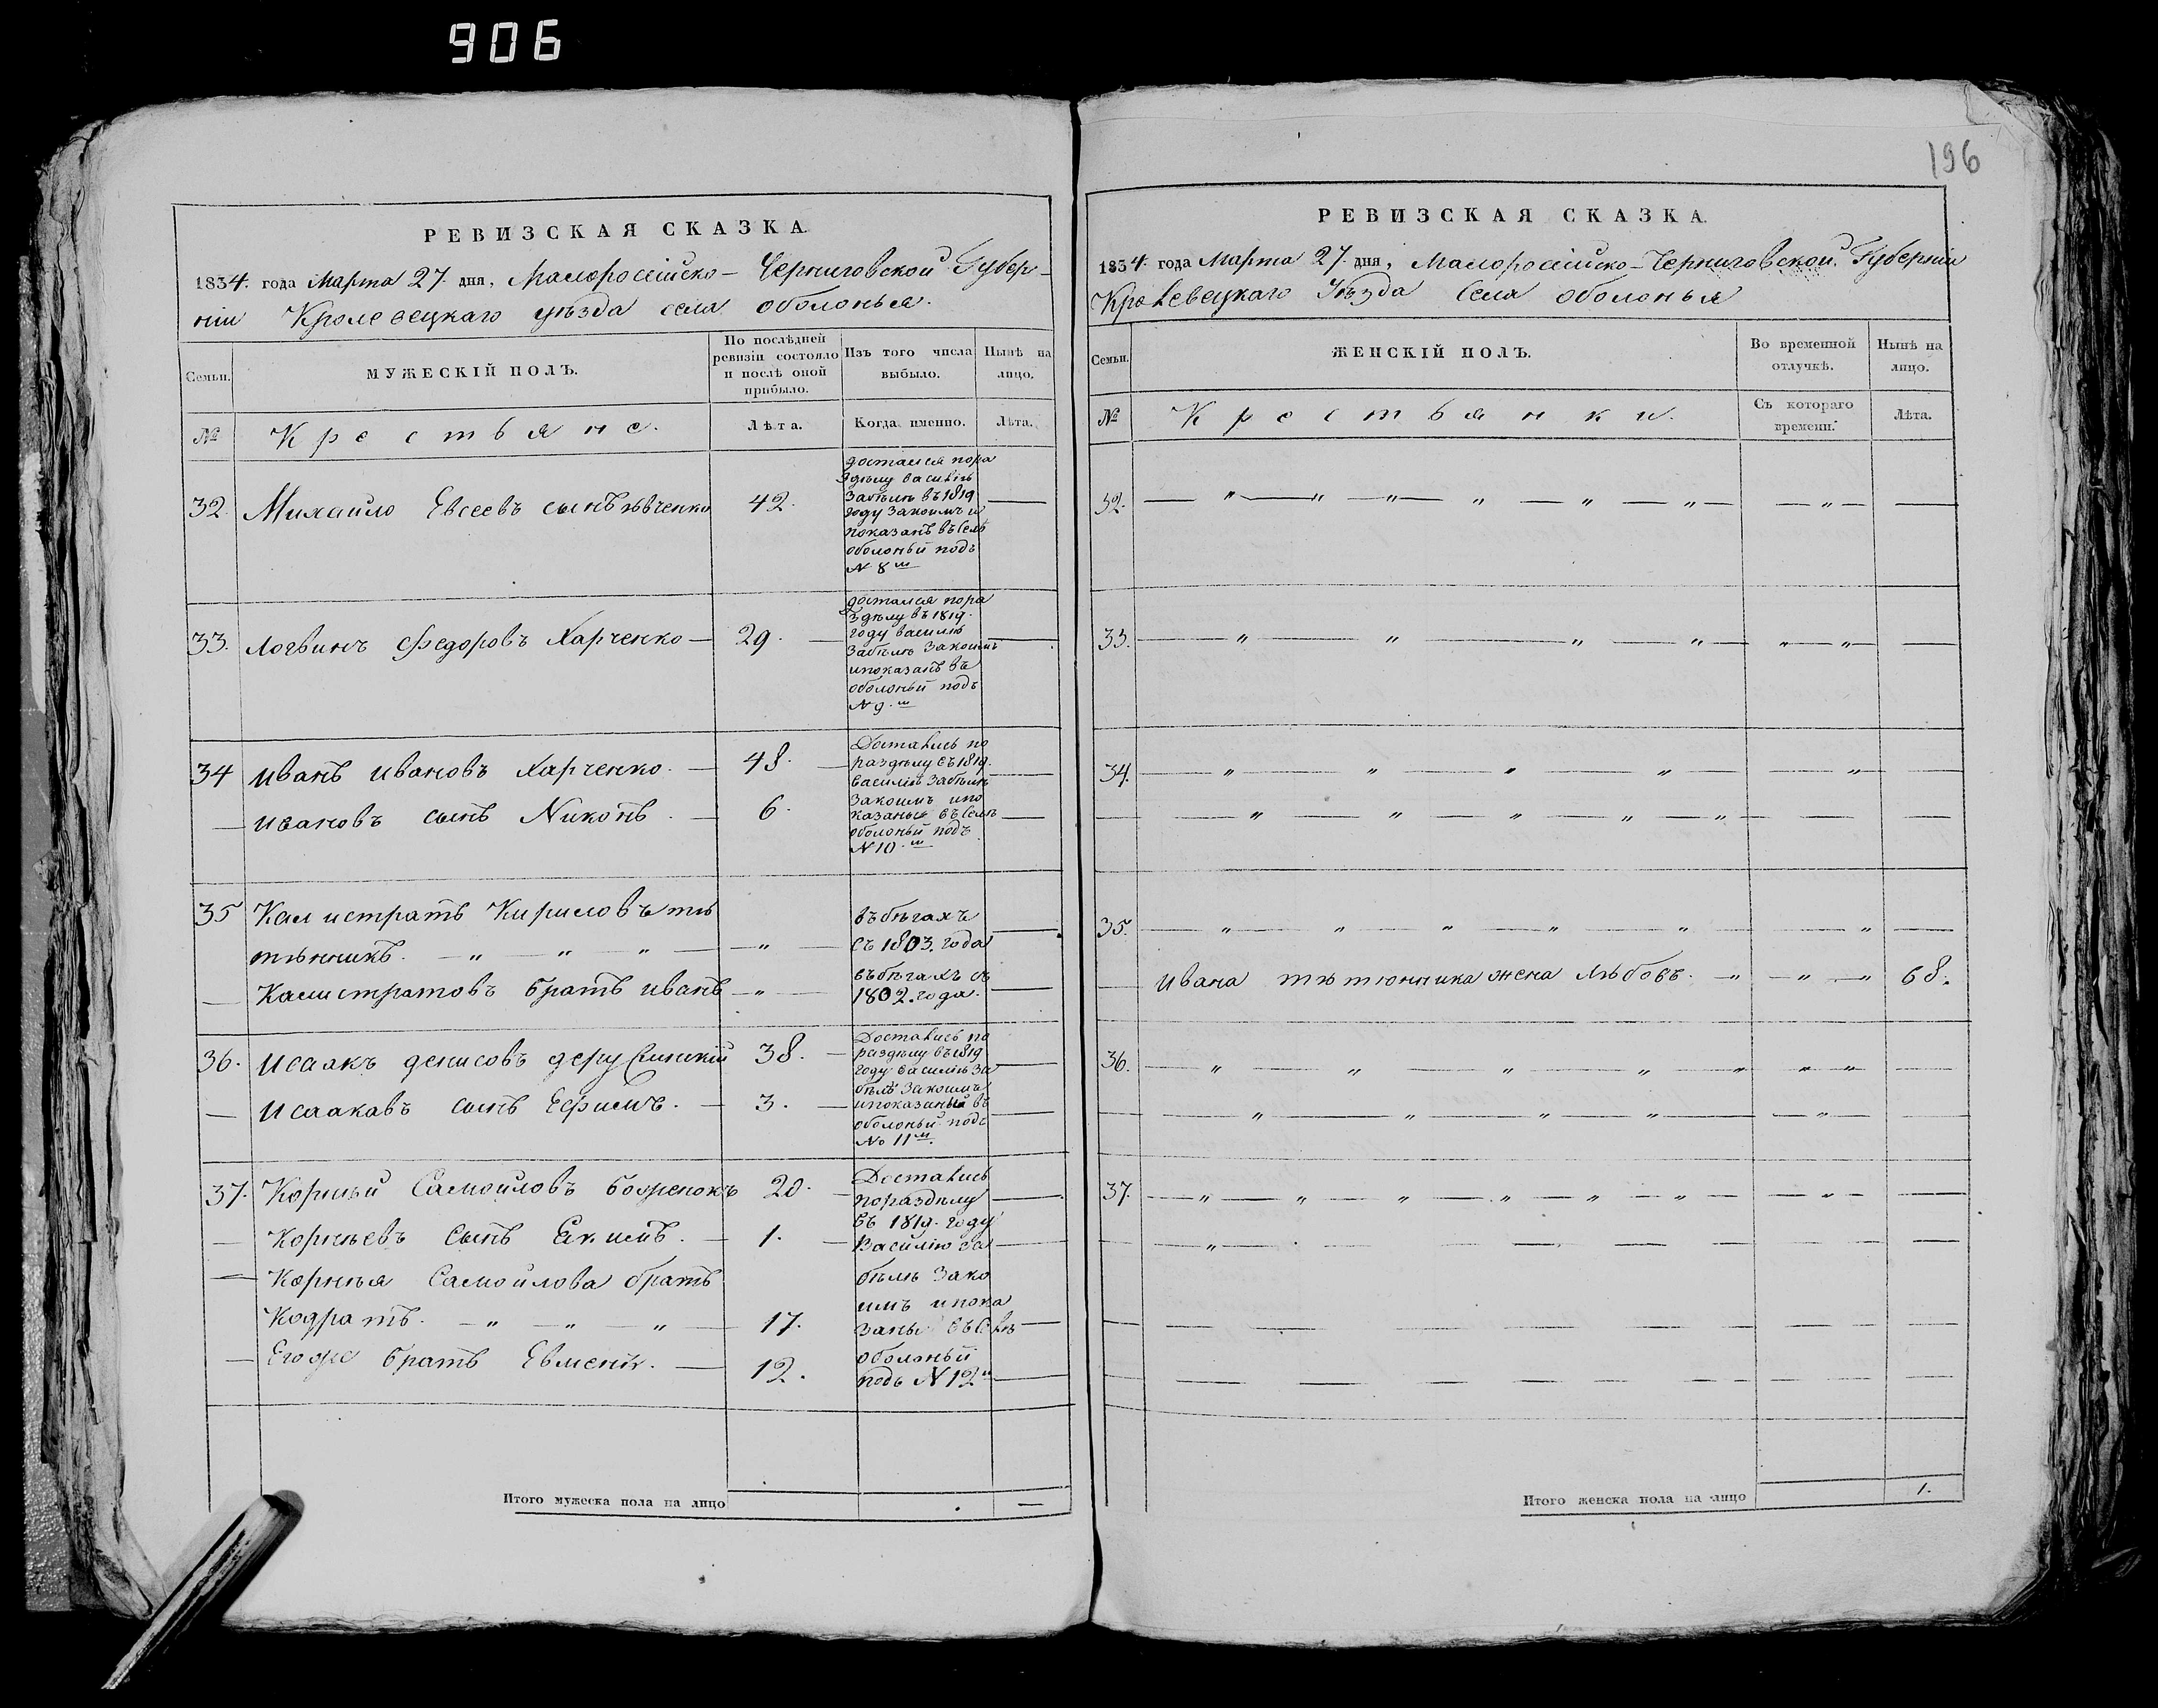 906
196
РЕВИЗСКАЯ СКАЗКА.
1834. года Марта 27. дня, Малоросѣйско-Черниговской Губер-
ніи Кролевецкаго уѣзда села оболонья.
Семьи.
МУЖЕСКІЙ ПОЛЪ.
По послѣдней
ревизіи состояло
и послѣ оной
прибыло.
Изъ того числа
выбыло.
Нынѣ на
лицо.
№
Крестьяне.
Лѣта.
Когда именно.
Лѣта.
32. Михайло Евсеевъ сынъ 42.
достался пора
здѣлу василію
Забѣлѣ въ 1819
году Закоимъ и
показанъ въ Селѣ
оболоньи подъ
N 8м
33. Логвинъ Федоровъ Харченко — 29.
достался пора
здѣлу въ 1819.
году василію
Забѣлѣ Закоимъ
ипоказанъ въ
оболоньи подъ
N 9.м
34 иванъ ивановъ Харченко. — 48.
— ивановъ сынъ Никонъ. — 6.
Достались по
раздѣлу въ 1819.
василію Забѣлѣ
Закоимъ ипо
казаны въ Селѣ
оболоньи подъ
N 10.м
35 Калистратъ Кириловъ тѣ
тѣнникъ. — „ — „ — „ — „ —
въбѣгахъ
съ 1803. года
— Калистратовъ братъ иванъ — „ —
въбѣгахъ съ
1802. года.
36. исаакъ денисовъ 38. —
— исаакавъ сынъ Ефимъ. — 3. —
Достались по
раздѣлу въ 1819
году василію За
бѣлѣ Закоимъ
ипоказаны въ
оболоньи подъ
No 11м.
37. Корнѣй Самойловъ 20.
— Корнѣевъ сынъ Екимъ. — 1.
— Корнѣя Самойлова братъ
Кодратъ. — „ — „ — „ — 17.
— Егоже братъ Евменъ. — 12.
Достались
пораздѣлу
въ 1819. году
Василію За
бѣлѣ Зако
имъ ипока
заны въ Селѣ
оболоньи
подъ N 12м
Итого мужеска пола на лицо —
РЕВИЗСКАЯ СКАЗКА.
1834. года Марта 27. дня, Малоросѣйско-Черниговской Губерніи
Кролевецкаго Уѣзда Села оболонья
Семьи.
ЖЕНСКІЙ ПОЛЪ.
Во временной
отлучкѣ.
Нынѣ на
лицо.
№
Крестьянки.
Съ котораго
времени.
Лѣта.
32. — „ — „ — „ — „ — „ — „ — — „ — —
33. — „ — „ — „ — „ — „ — „ — —
34. — „ — „ — „ — „ — — „ — —
— „ — „ — „ — „ — „ — — —
35. — „ — „ — „ — „ — „ — — „ —
— ивана тѣтюнника жена Любовъ. — „ — „ — „ 68.
36. — „ — „ — „ — „ — „ „ — „ — —
— „ — „ — „ — „ — — „ — —
37. — „ — „ — „ — „ — „ — „ — — „ — —
— „ — — — — — — — —
— — — — — — — — —
— — — — — — — — —
Итого женска пола на лицо 1.